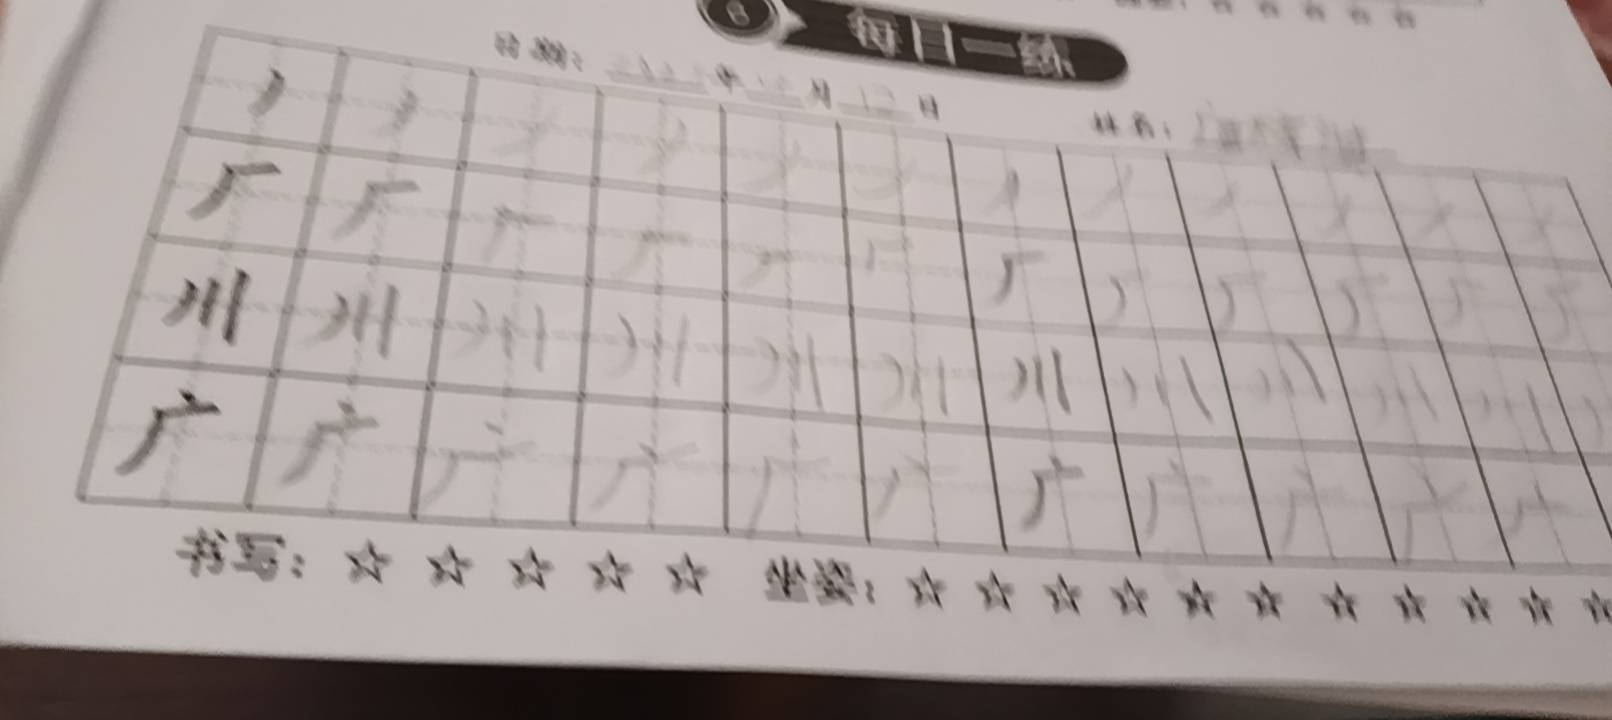 8 每日一练
日期： 年 月 12 日
姓名：
丿 丿 丿 丿 丿 丿 丿 丿 丿 丿 丿 丿
厂 厂 厂 厂 厂 厂 厂 厂 厂 厂 厂 厂
川 川 川 川 川 川 川 川 川 川 川
广 广 广 广 广 广 广 广 广 广 广
书写：☆ ☆ ☆ ☆ ☆ 坐姿：☆ ☆ ☆ ☆ ☆ ☆ ☆ ☆ ☆ ☆ ☆